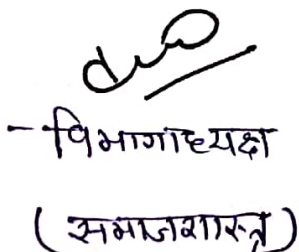 - विभागाध्यक्ष
(समाजशास्त्र)